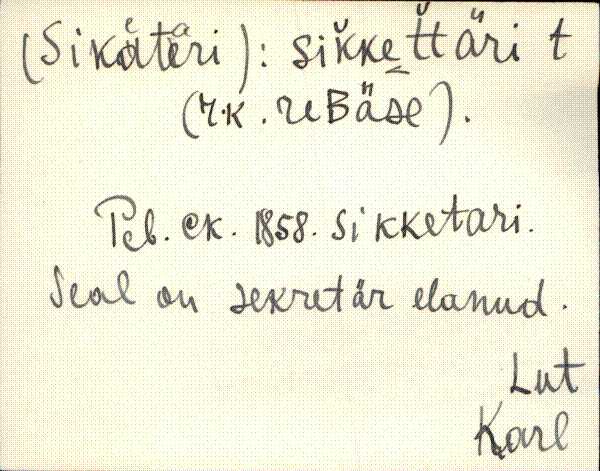 (Sikätäri): sikkettäri t
(r.k. reBäse).
Peb. ek. 1858. sikketari.
Seal on sekretär elanud.
Lut
Karl